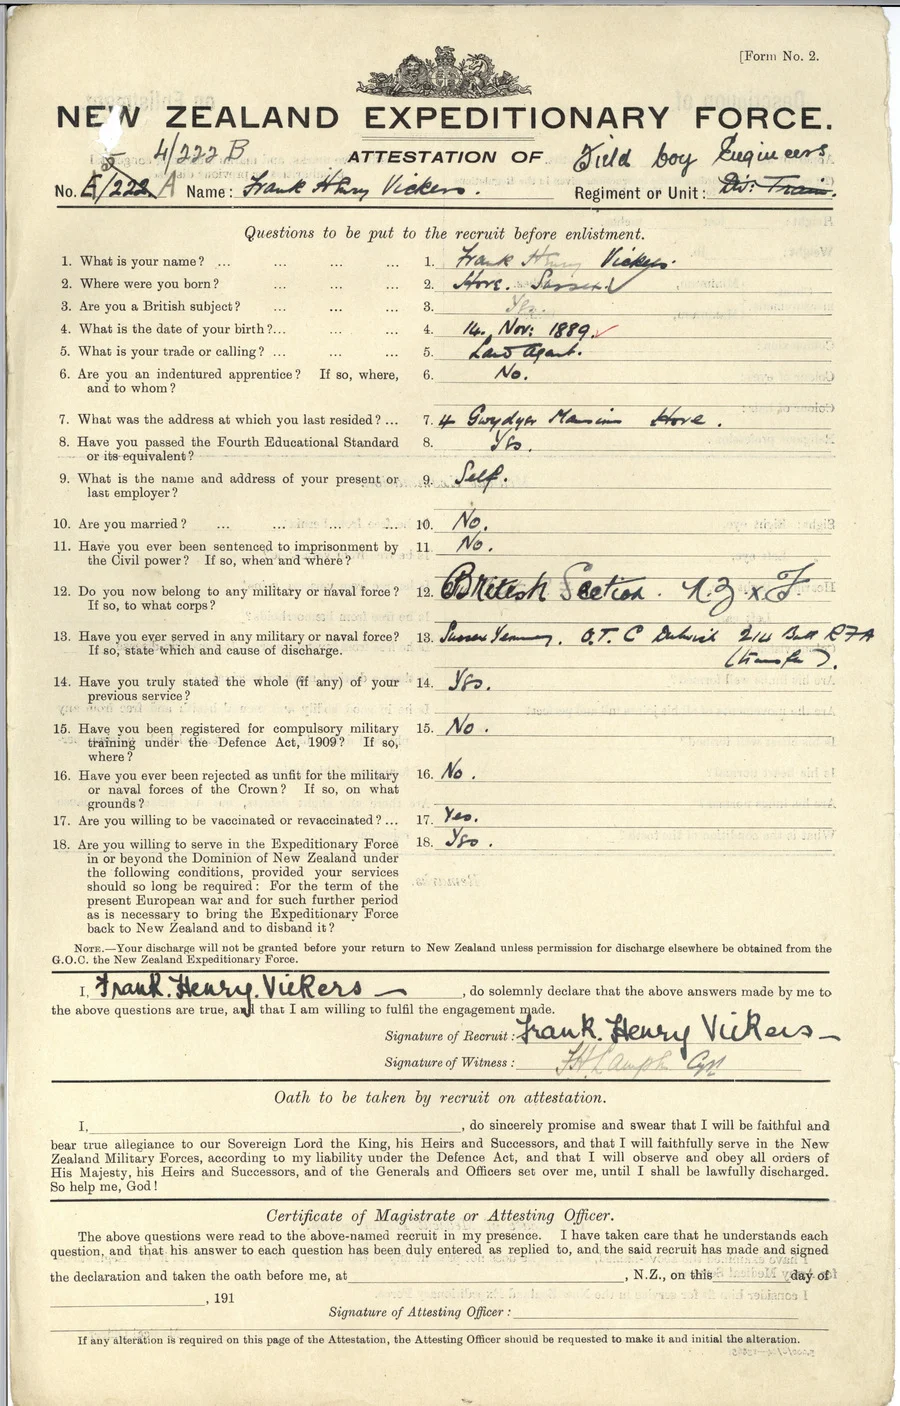 [Form No. 2.
NEW ZEALAND EXPEDITIONARY FORCE.
4/222 B ATTESTATION OF Field Coy Engineers
No. 5/222 A Name: Frank Henry Vickers. Regiment or Unit: Div: Train.
Questions to be put to the recruit before enlistment.
1. What is your name? ... ... ... ... 1. Frank Henry Vickers.
2. Where were you born? ... ... ... 2. Hove. Sussex.
3. Are you a British subject? ... ... 3. Yes.
4. What is the date of your birth?... ... ... 4. 14. Nov: 1889.
5. What is your trade or calling? ... ... ... 5. Land Agent.
6. Are you an indentured apprentice? If so, where, 6. No.
and to whom?
7. What was the address at which you last resided? ... 7. 4 Gwydyr Mansions Hove.
8. Have you passed the Fourth Educational Standard 8. Yes.
or its equivalent?
9. What is the name and address of your present or 9. Self.
last employer?
10. Are you married? ... ... ... ... 10. No.
11. Have you ever been sentenced to imprisonment by 11 No.
the Civil power? If so, when and where?
12. Do you now belong to any military or naval force? 12. British Section. N.Z.x.F.
If so, to what corps?
13. Have you ever served in any military or naval force? 13. Sussex Yeomanry. O.T.C Dulwich 214 Batt RFA
If so, state which and cause of discharge. (transfer).
14. Have you truly stated the whole (if any) of your 14. Yes.
previous service?
15. Have you been registered for compulsory military 15. No.
training under the Defence Act, 1909? If so,
where?
16. Have you ever been rejected as unfit for the military 16. No.
or naval forces of the Crown? If so, on what
grounds?
17. Are you willing to be vaccinated or revaccinated? ... 17. Yes.
18. Are you willing to serve in the Expeditionary Force 18. Yes.
in or beyond the Dominion of New Zealand under
the following conditions, provided your services
should so long be required: For the term of the
present European war and for such further period
as is necessary to bring the Expeditionary Force
back to New Zealand and to disband it?
NOTE.—Your discharge will not be granted before your return to New Zealand unless permission for discharge elsewhere be obtained from the
G.O.C. the New Zealand Expeditionary Force.
I, Frank. Henry. Vickers —, do solemnly declare that the above answers made by me to
the above questions are true, and that I am willing to fulfil the engagement made.
Signature of Recruit: Frank. Henry Vickers —
Signature of Witness:
Oath to be taken by recruit on attestation.
I, , do sincerely promise and swear that I will be faithful and
bear true allegiance to our Sovereign Lord the King, his Heirs and Successors, and that I will faithfully serve in the New
Zealand Military Forces, according to my liability under the Defence Act, and that I will observe and obey all orders of
His Majesty, his Heirs and Successors, and of the Generals and Officers set over me, until I shall be lawfully discharged.
So help me, God!
Certificate of Magistrate or Attesting Officer.
The above questions were read to the above-named recruit in my presence. I have taken care that he understands each
question, and that his answer to each question has been duly entered as replied to, and the said recruit has made and signed
the declaration and taken the oath before me, at , N.Z., on this day of
, 191
Signature of Attesting Officer:
If any alteration is required on this page of the Attestation, the Attesting Officer should be requested to make it and initial the alteration.